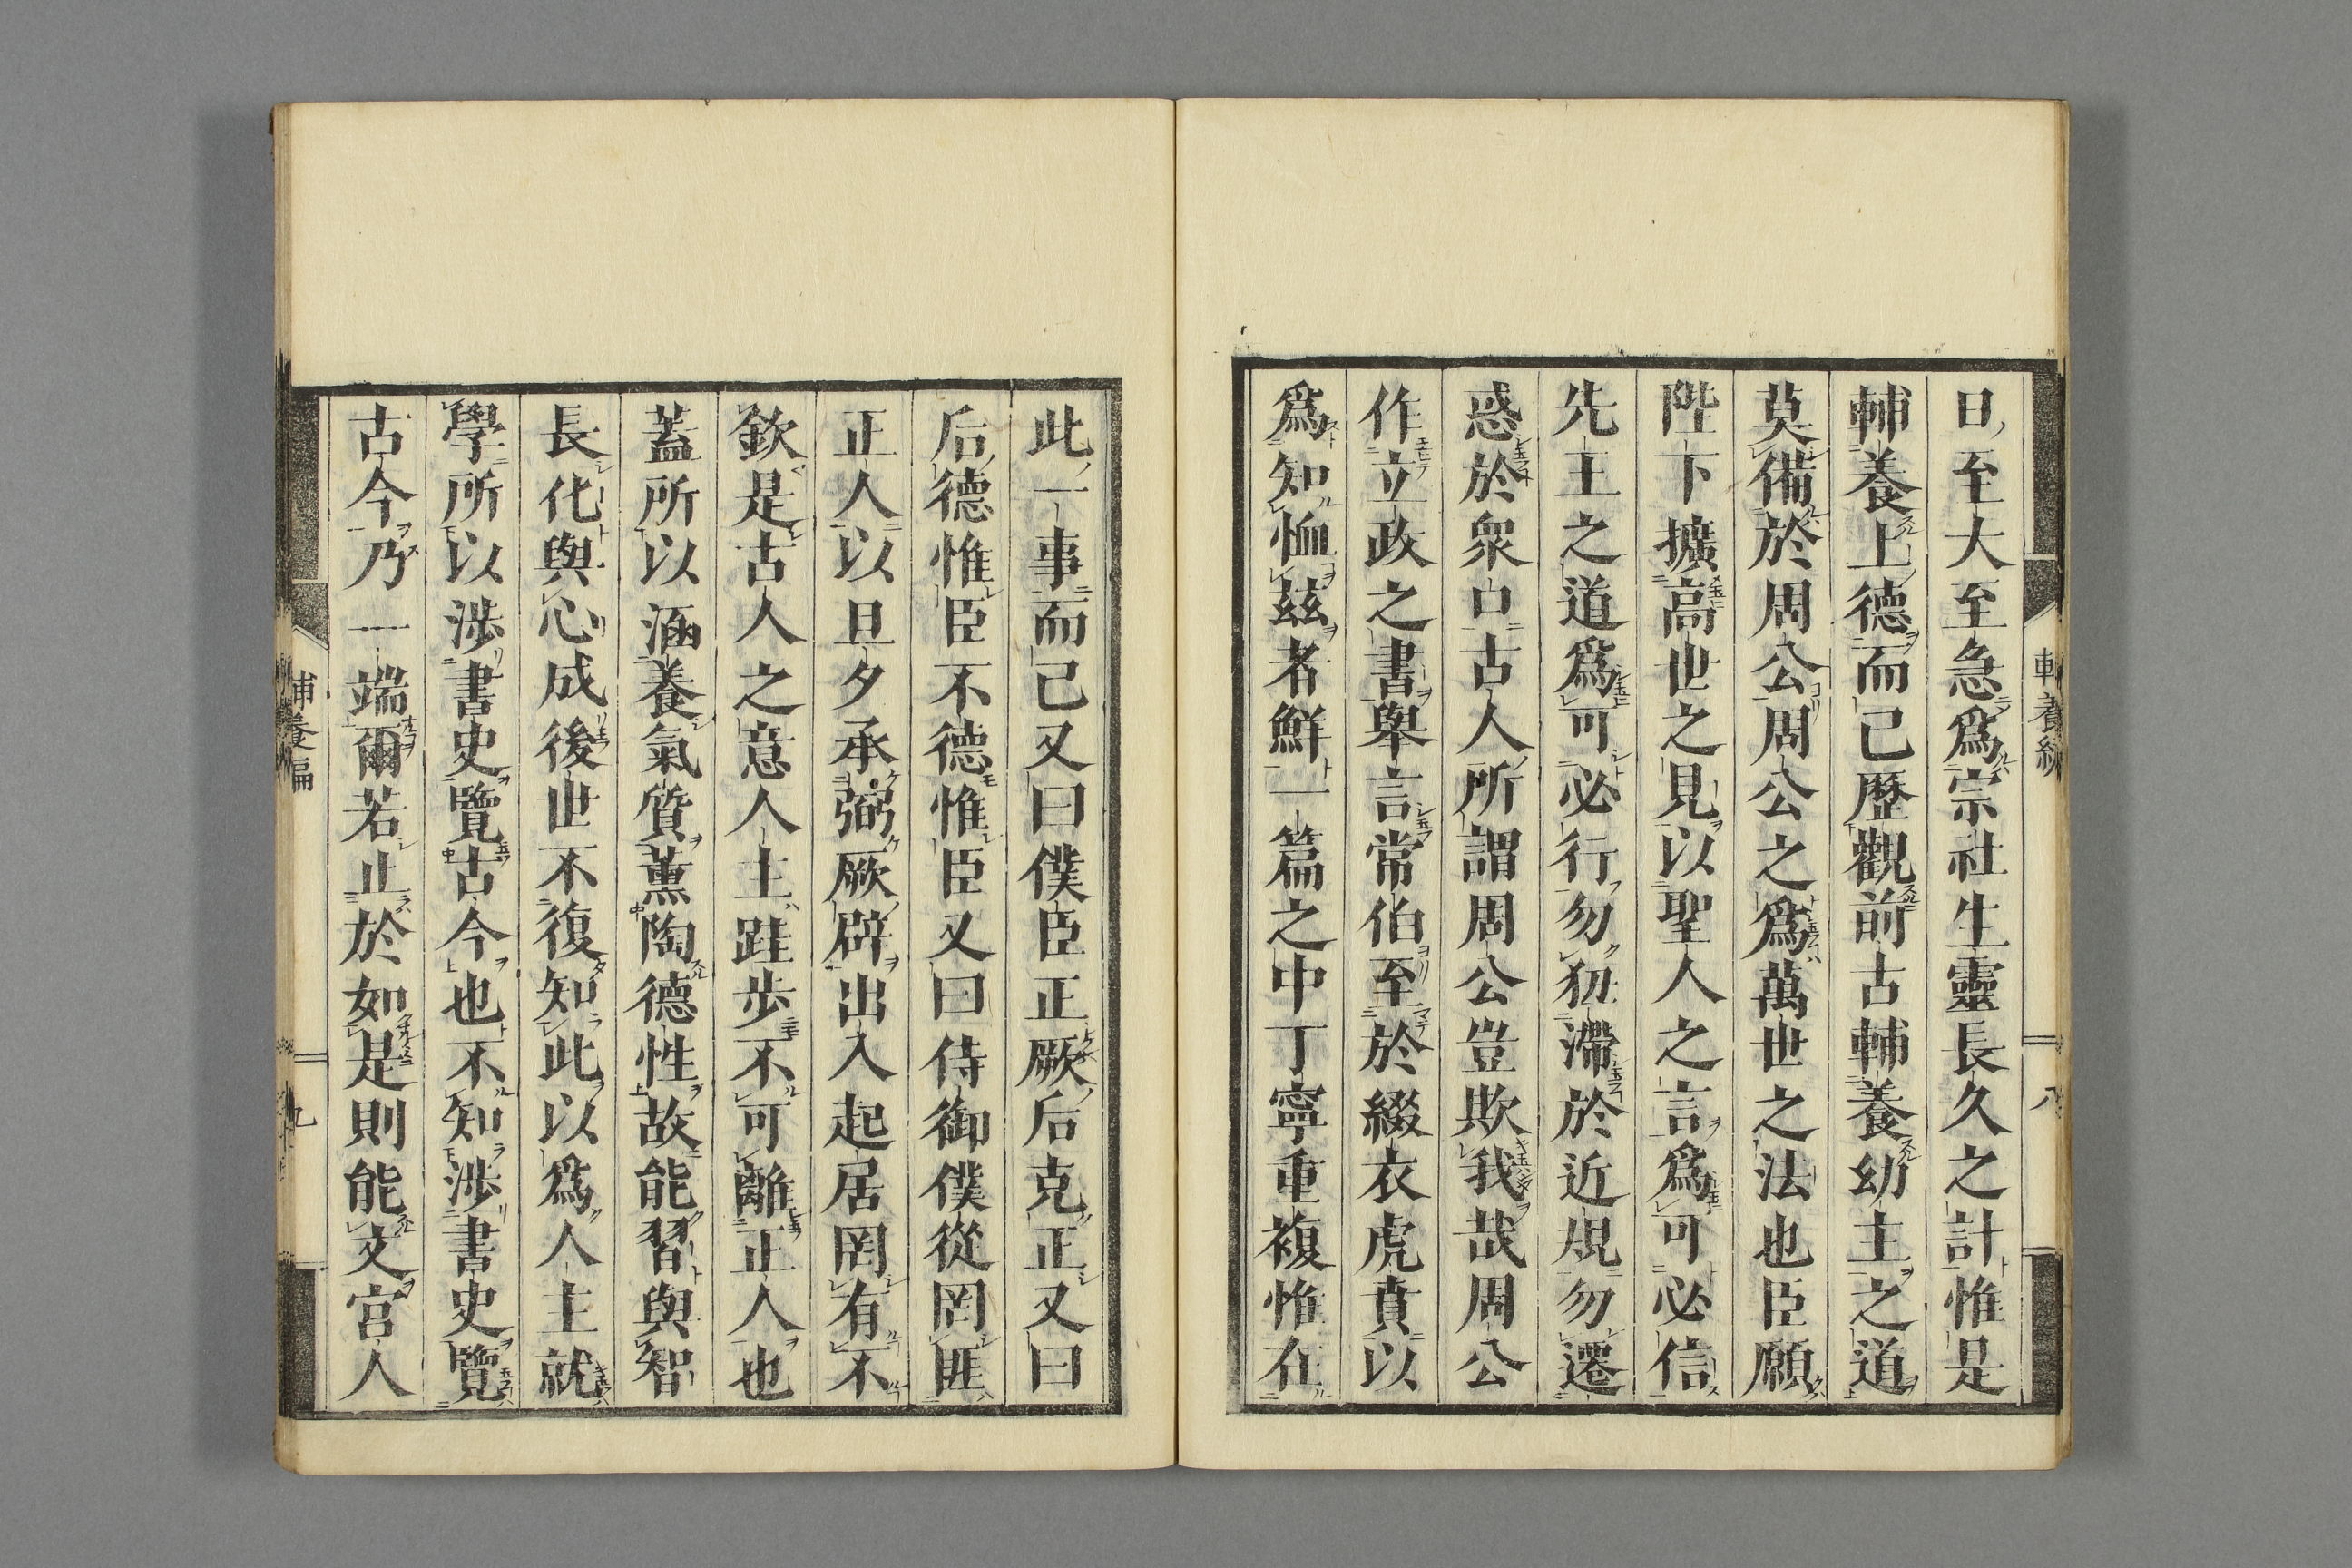 日至大至急爲宗社生靈長久之計惟是
輔養上德而已歷觀前古輔養幼主之道
莫備於周公周公之爲萬世之法也臣願
陛下擴高世之見以聖人之言爲可必信
先王之道爲可必行勿狃滯於近規勿遷
惑於衆口古人所謂周公豈欺我哉周公
作立政之書舉言常伯至於綴衣虎賁以
爲知恤茲者鮮一篇之中丁寧重複惟在
此一事而已又曰僕臣正厥后克正又曰
后德惟臣不德惟臣又曰侍御僕從罔匪
正人以旦夕承弼厥辟出入起居罔有不
欽是古人之意人主跬步不可離正人也
蓋所以涵養氣質薰陶德性故能習與智
長化與心成後世不復知此以爲人主就
學所以涉書史覽古今也不知涉書史覽
古今乃一端爾若止於如是則能文宮人
輔養編
九